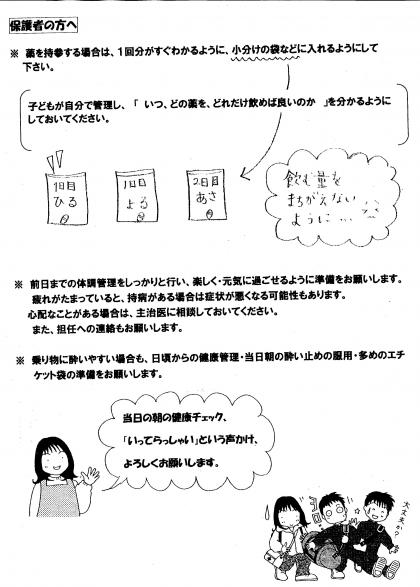 保護者の方へ
※ 薬を持参する場合は、1回分がすぐわかるように、小分けの袋などに入れるようにして
下さい。
子どもが自分で管理し、「 いつ、どの薬を、どれだけ飲めば良いのか 」を分かるように
しておいてください。
1日目
ひる
1日目
よる
2日目
あさ
飲む量を
まちがえない
ように…
※ 前日までの体調管理をしっかりと行い、楽しく・元気に過ごせるように準備をお願いします。
疲れがたまっていると、持病がある場合は症状が悪くなる可能性もあります。
心配なことがある場合は、主治医に相談しておいてください。
また、担任への連絡もお願いします。
※ 乗り物に酔いやすい場合も、日頃からの健康管理・当日朝の酔い止めの服用・多めのエチ
ケット袋の準備をお願いします。
当日の朝の健康チェック、
「いってらっしゃい」という声かけ、
よろしくお願いします。
大丈夫か?